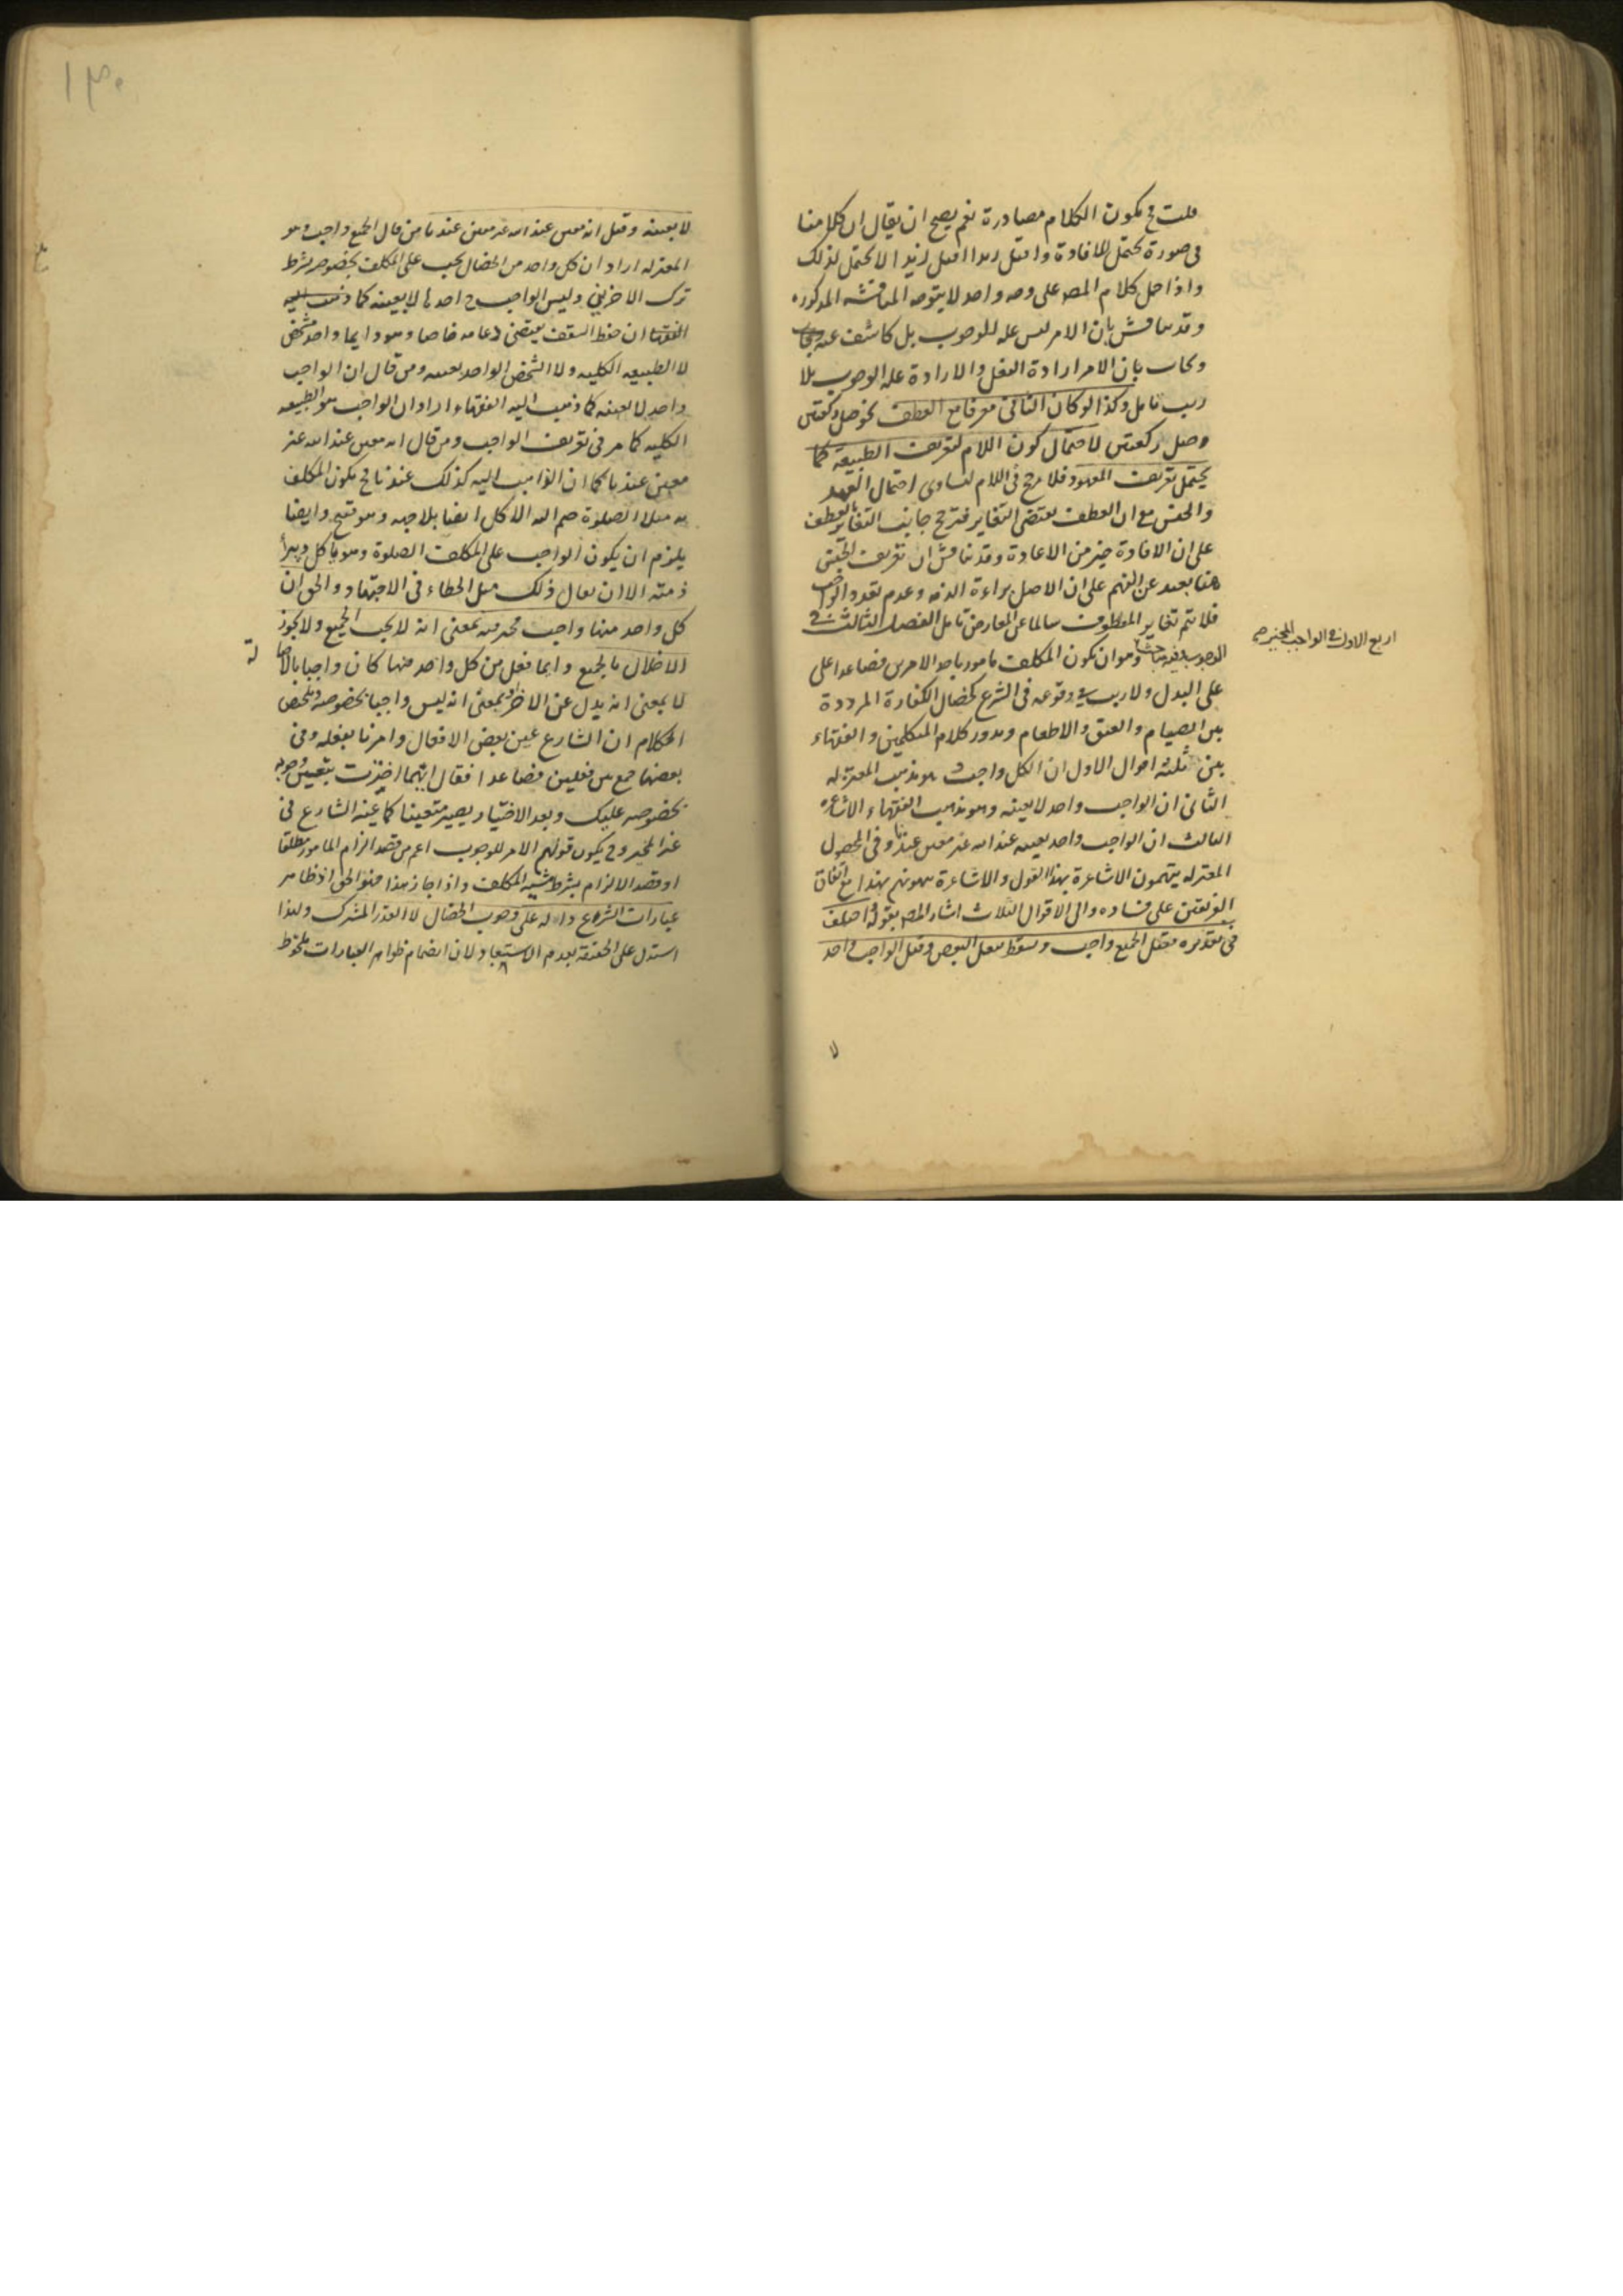 قلت فح يكون الكلام مصادرة نعم يصح ان يقال ان كلامنا
فى صورة يحتمل للافادة واقتل زيدا اقتل زيدا لا يحتمل لذلك
واذا حمل كلام المصـ على وجه واحد لا يتوجه المناقشه المذكوره
وقد يناقش بان الامر ليس عله للوجوب بل كاشف عنه
ويجاب بان الامر ارادة الفعل والارادة علة الوجوب بلا
ريب تامل وكذا لو كان الثانى معرفا مع العطف نحو صل ركعتين
وصل ركعتين لاحتمال كون اللام لتعريف الطبيعة كما
يحتمل تعريف المعهود فلا مرجح فى اللام لتساوى احتمال العهد
والجنس مع ان العطف يقتضى التغاير فترجح جانب التغاير العطف
على ان الافادة خير من الاعادة وقد يناقش ان تعريف الجنس
هنا بعيد عن الفهم على ان الاصل براءة الذمه وعدم تعدد الواجب
فلا يتم تغاير المعطوف سالما عن المعارض تامل الفصل الثالث فى
الوجوب وفيه مباحث وهو ان يكون المكلف مامورا باحد الامرين فصاعدا على
اربع الاول فى الواجب المخير صح
على البدل ولا ريب فى وقوعه فى الشرع كخصال الكفارة المرددة
بين الصيام والعتق والاطعام ويدور كلام المتكلمين والفقهاء
بين ثلثه اقوال الاول ان الكل واجب وهو مذهب المعتزله
الثانى ان الواجب واحد لا بعينه وهو مذهب الفقهاء والاشاعره
الثالث ان الواجب واحد بعينه عند الله غير معين عندنا وفى المحصول
المعتزله يتهمون الاشاعرة بهذا القول والاشاعرة يتهمونهم بهذا مع اتفاق
الفريقين على فساده والى الاقوال الثلاث اشار المصـ بقوله واختلف
فى تقديره فقيل الجميع واجب ويسقط بفعل البعض وقيل الواجب واحد
لا
١٣٠
لا بعينه وقيل انه معين عند الله غير معين عندنا من قال الجميع واجب وهو
المعتزله اراد ان كل واحد من الخصال يجب على المكلف بخصوصه بشرط
ترك الاخريين وليس الواجب ح احدها لا بعينه كما ذهب اليه
الفقها ان حفظ السقف يقتضى دعامه خاصا وهو دايما واحد شخص
لا الطبيعه الكليه ولا الشخص الواحد بعينه ومن قال ان الواجب
واحد لا بعينه كما ذهب اليه الفقهاء اراد ان الواجب هو الطبيعه
الكليه كما مر فى تعريف الواجب ومن قال انه معين عند الله غير
معين عندنا كما ان الذاهب اليه كذلك عندنا فح يكون المكلف
به مثلا الصلوة ضم اليه الاكل ايضا بلا جهه وهو قبيح وايضا
يلزم ان يكون الواجب على المكلف الصلوة وهو ياكل ويبرأ
ذمته الا ان يقال ذلك مثل الخطاء فى الاجتهاد والحق ان
كل واحد منها واجب مخير فيه بمعنى انه لا يجب الجميع ولا يجوز
الاخلال بالجميع وايما فعل من كل واحد منها كان واجبا بالاصا
لة
لا بمعنى انه بدل عن الاخر وبمعنى انه ليس واجبا بخصوصه وملخص
الكلام ان الشارع عين بعض الافعال وامرنا بفعله وفى
بعضها جمع بين فعلين فصاعدا فقال ايهما اخترت يتعين وجوبه
بخصوصه عليك وبعد الاختيار يصير متعينا كما عينه الشارع فى
غير المخير وفح يكون قولهم الامر للوجوب اعم من قصد الزام المامور مطلقا
او قصد الالزام بشرط مشيه المكلف واذا جاز هذا فهو الحق اذ ظاهر
عبارات الشرع داله على وجوب الخصال لا القدر المشترك ولهذا
استدل على الحقيقة بعدم الاستبعاد لان انضمام ظواهر العبارات ملحوظ